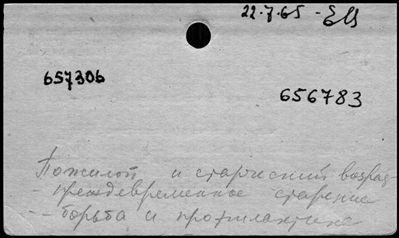 22.7.65 - ЕЦ
657306
656783
Пожилой и старческий возраст
- преждевременное старение
- борьба и профилактика